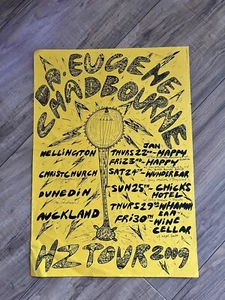 DR. EUGENE
CHADBOURNE
JAN
WELLINGTON THURS 22ND - HAPPY
FRI 23RD - HAPPY
CHRISTCHURCH SAT 24TH - WUNDERBAR
DUNEDIN SUN 25TH - CHICKS
HOTEL
AUCKLAND THURS 29TH WHAMMY
BAR
FRI 30TH - WINE
CELLAR
NZ TOUR 2009